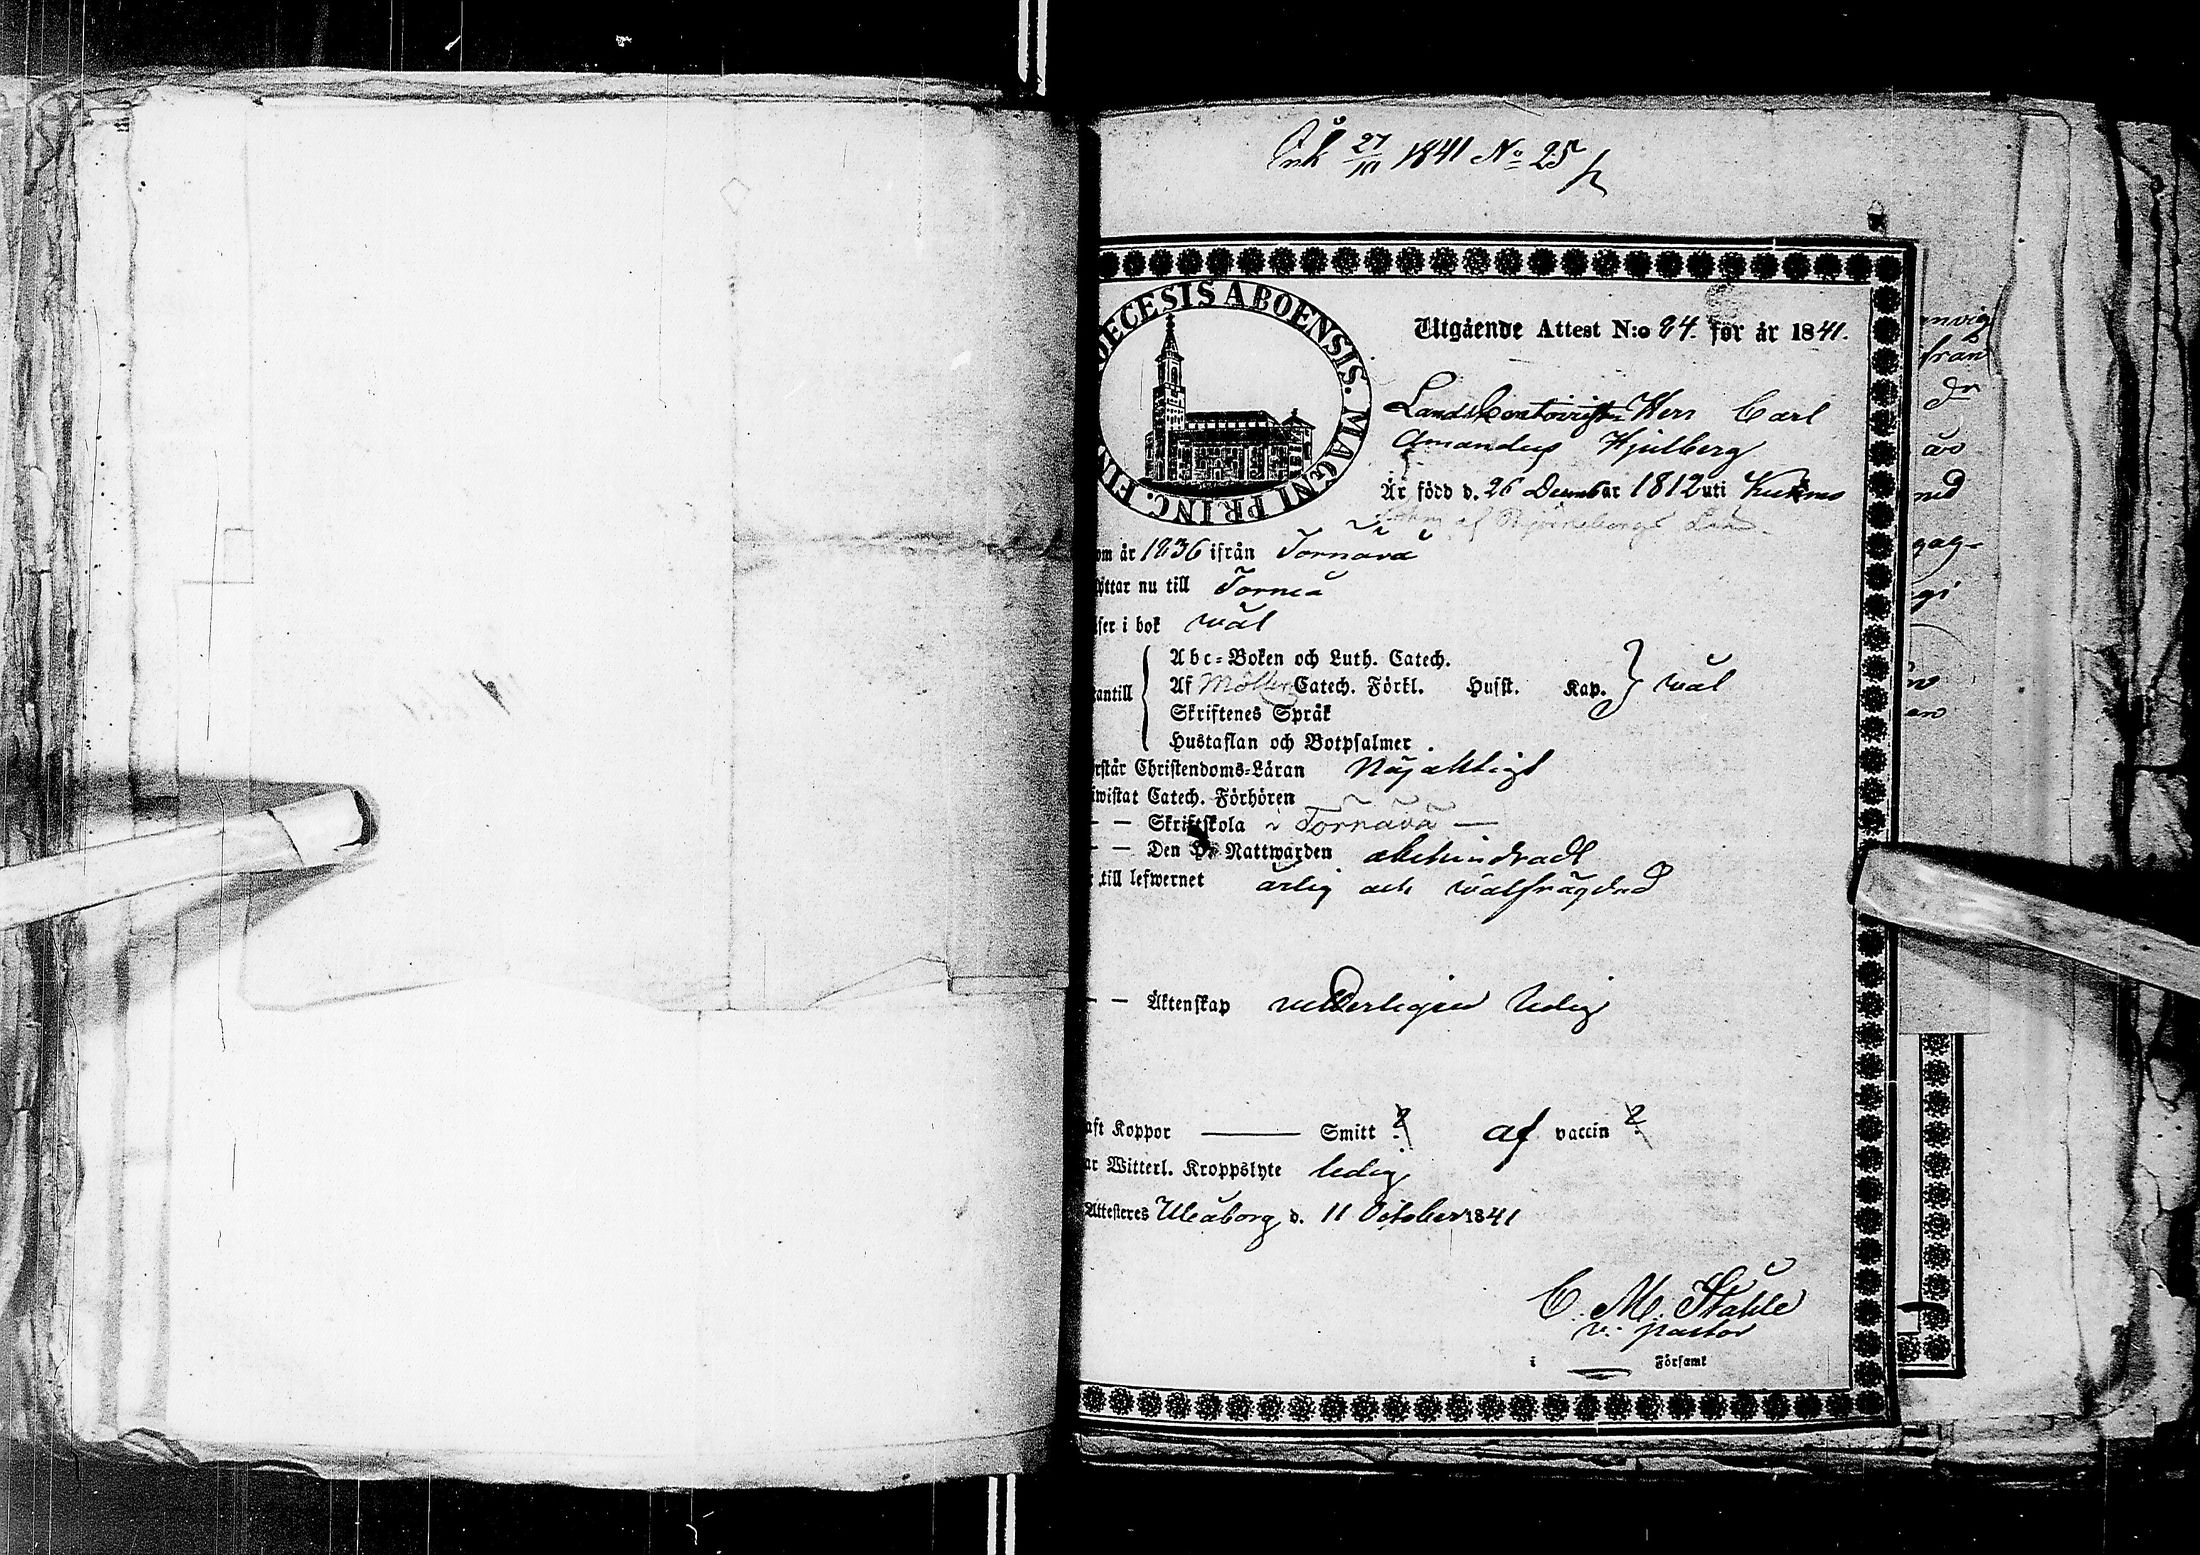 Ink 27/10 1841 No 25
OECESIS ABOENSIS. MAGNI PRINC. FIN
Utgående Attest N:o 84. för år 1841.
Landskontorist Herr Carl
Amandus Hjulberg
Är född d. 26 December 1812 uti Kumo
Sokn af Björneborgs Län
om år 1836 ifrån Tornåvå
yttar nu till Torneå
äser i bok wäl
antill
Abc-Boken och Luth. Catech.
Af Möllers Catech. Förkl. Hufst. Kap. wäl
Skriftenes Språk
Hustaflan och Botpsalmer.
rstår Christendoms-Läran Nöjaktigt
iwistat Catech. Förhören
— Skriftskola i Tornåvå —
— — Den H. Nattwarden obehindradt
till lefwernet ärlig och wälfrägdad
— — Äktenskap vetterligen ledig
aft Koppor — Smitt ? af vaccin ?
ar Witterl. Kroppslyte ledig
Attesteres Uleåborg d. 11 October 1841
C. M. Ståhle
v. pastor
i — Församl
från
gag-